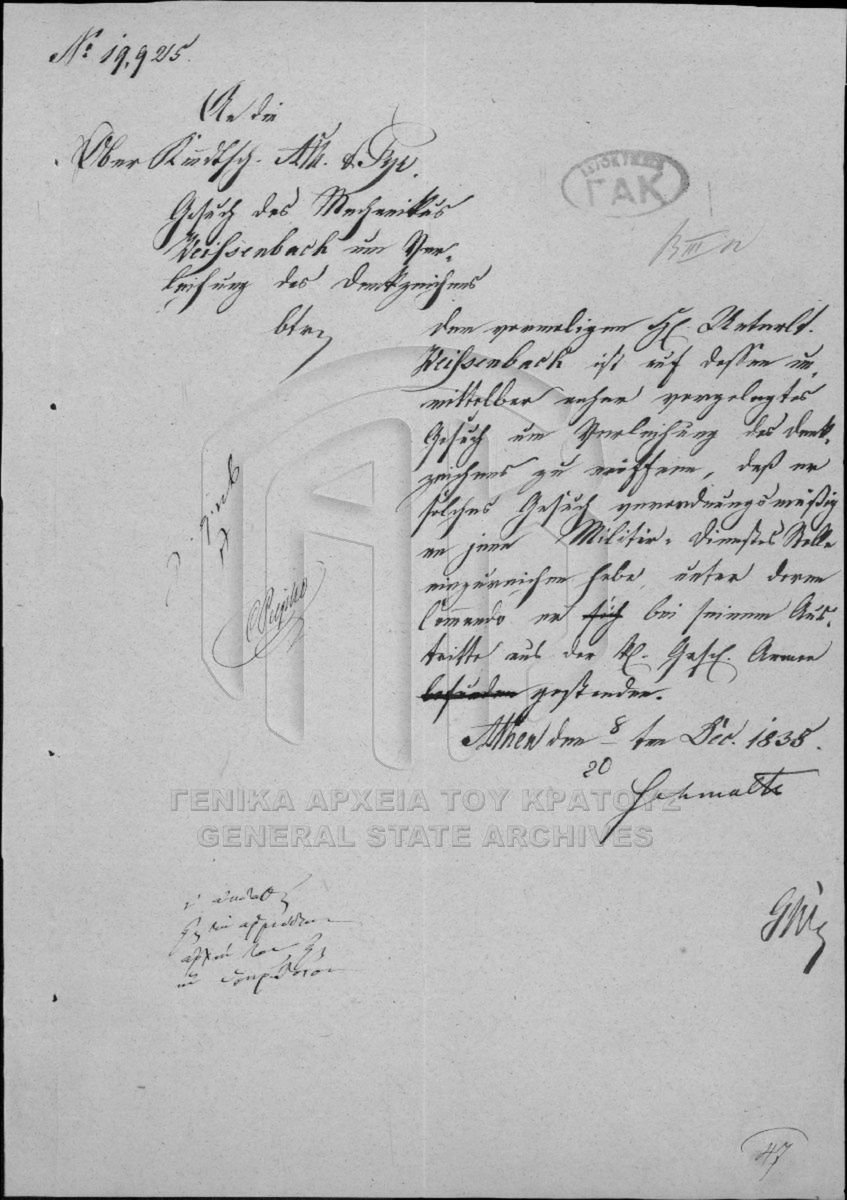 No 19,925.
An die
Ober Kmdtsch. Ath. &
ΓΑΚ
Gesuch des Mechanikus
Weissenbach um Ver-
leihung des Denkzeichens
btr.
Dem vormaligen H. Unterlt.
Weissenbach ist auf dessen un-
mittelbar anher vorgelegtes
Gesuch um Verleihung des Denk-
zeichens zu eröffnen, daß er
solches Gesuch verordnungsmäßig
an jene Militär-Dienstes Stelle
einzureichen habe, unter deren
Commando er sich bei seinem Aus-
tritte aus der K. Griech. Armee
befunden gestanden.
Athen den 8/20 ten Dec. 1838.
Schmaltz
ΓΕΝΙΚΑ ΑΡΧΕΙΑ ΤΟΥ ΚΡΑΤΟΥΣ
GENERAL STATE ARCHIVES
47